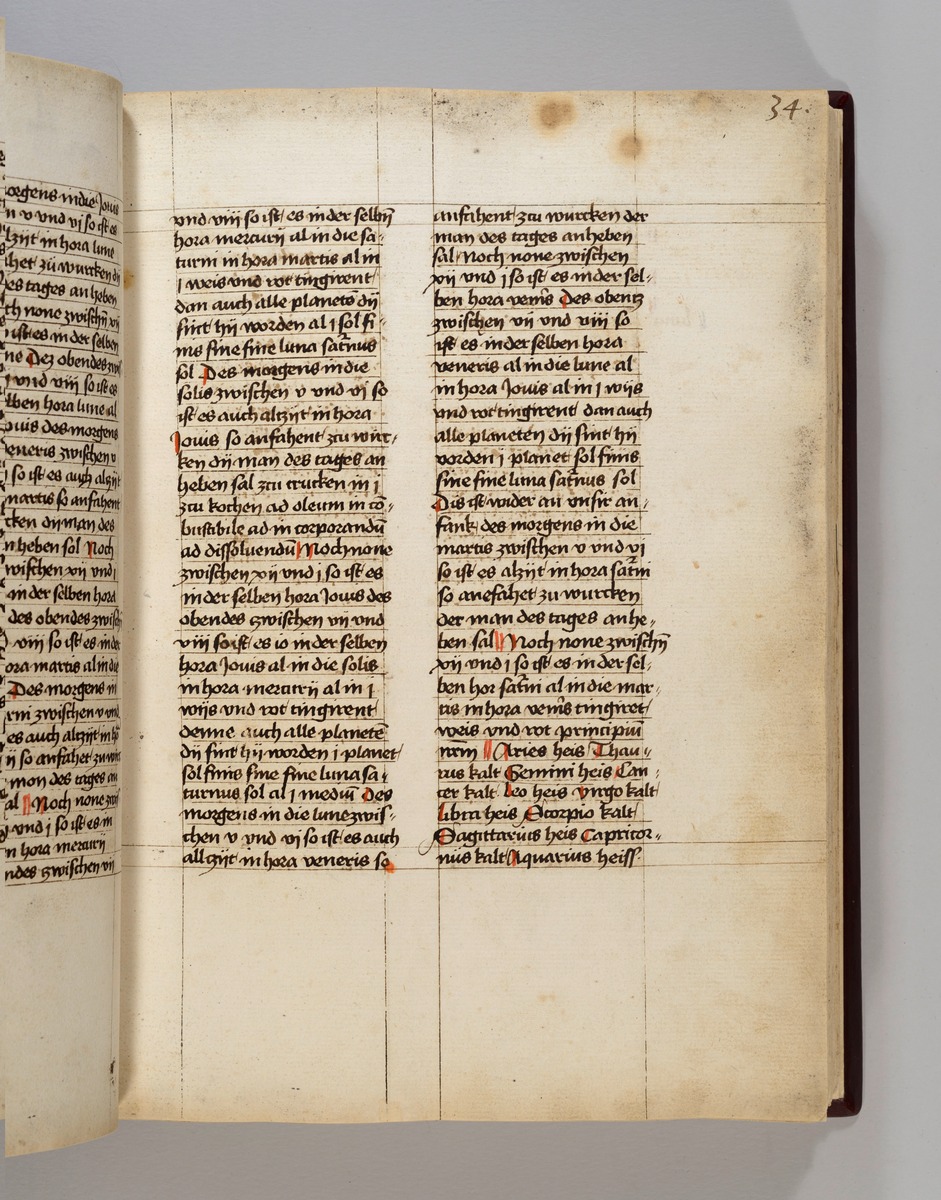 orgens in die Jouis
n v vnd vj so ist es
lzijt in hora lune
ahet zü wurcken dij
es tages an heben
ch none zwischn xij
ist es in der selben
ne Dez obendes zwi
j vnd viij so ist es
lben hora lune al
ouis des morgens
eneris zwischen v
j so ist es auch alzijt
martis so anfahent
cken dij man des
n heben sol Noch
wischen xij vnd j
in der selben hora
des obendes zwisch
viij so ist es in der
ora martis al in die
Des morgens in
rni zwischen v vnd
es auch altzijt in h
ij so anfahet zu wur
mon des tages an
al Noch none zwi
vnd j so ist es in
n hora mercurij
ndes zwischen vij
34.
vnd viij so ist es in der selbn
hora mercurij al in die sa-
turni in hora martis al in
j weis vnd rot tingirent
dan auch alle planetē dij
sint hij worden al j sol fi-
nis fine fine luna satnus
sol Des morgens in die
solis zwischen v vnd vj so
ist es auch altzijt in hora
Jouis so anfahent zcu wur-
ken dij man des tages an
heben sal zcu trucken in j
zcu kochen ad oleum in cō-
bustibile ad in corporandū
ad dissoluendū Noch none
zwischen xij vnd j so ist es
in der selben hora Jouis des
obendes zwischen vij vnd
viij so ist es io in der selben
hora Jouis al in die solis
in hora mercurij al in j
wijs vnd rot tingirent
denne auch alle planetē
dij sint hij worden j planet
sol finis fine fine luna sa-
turnus sol al j mediū des
morgens in die lune zwis-
chen v vnd vj so ist es auch
all zijt in hora veneris so
anfahent zcu wurcken der
man des tages anheben
sal Noch none zwischen
xij vnd j so ist es in der sel-
ben hora venis Des obentz
zwischen vij vnd viij so
ist es in der selben hora
veneris al in die lune al
in hora Jouis al in j wijs
vnd rot tingirent dan auch
alle planeten dij sint hij
vorden j planet sol finis
fine fine luna satnus sol
Dis ist wider an vnsir an-
fank des morgens in die
martis zwischen v vnd vj
so ist es alzijt in hora satni
so anefahet zu wurcken
der man des tages anhe-
ben sal Noch none zwischn
xij vnd j so ist es in der sel-
ben hor satni al in die mar-
tis in hora venis tingiret
weis vnd rot principiū
nrm Aries heis Thau-
rus kalt Gemini heis Can-
cer kalt Leo heis virgo kalt
libra heis Scorpio kalt
Sagittarius heis Capricor-
nus kalt Aquarius heiss